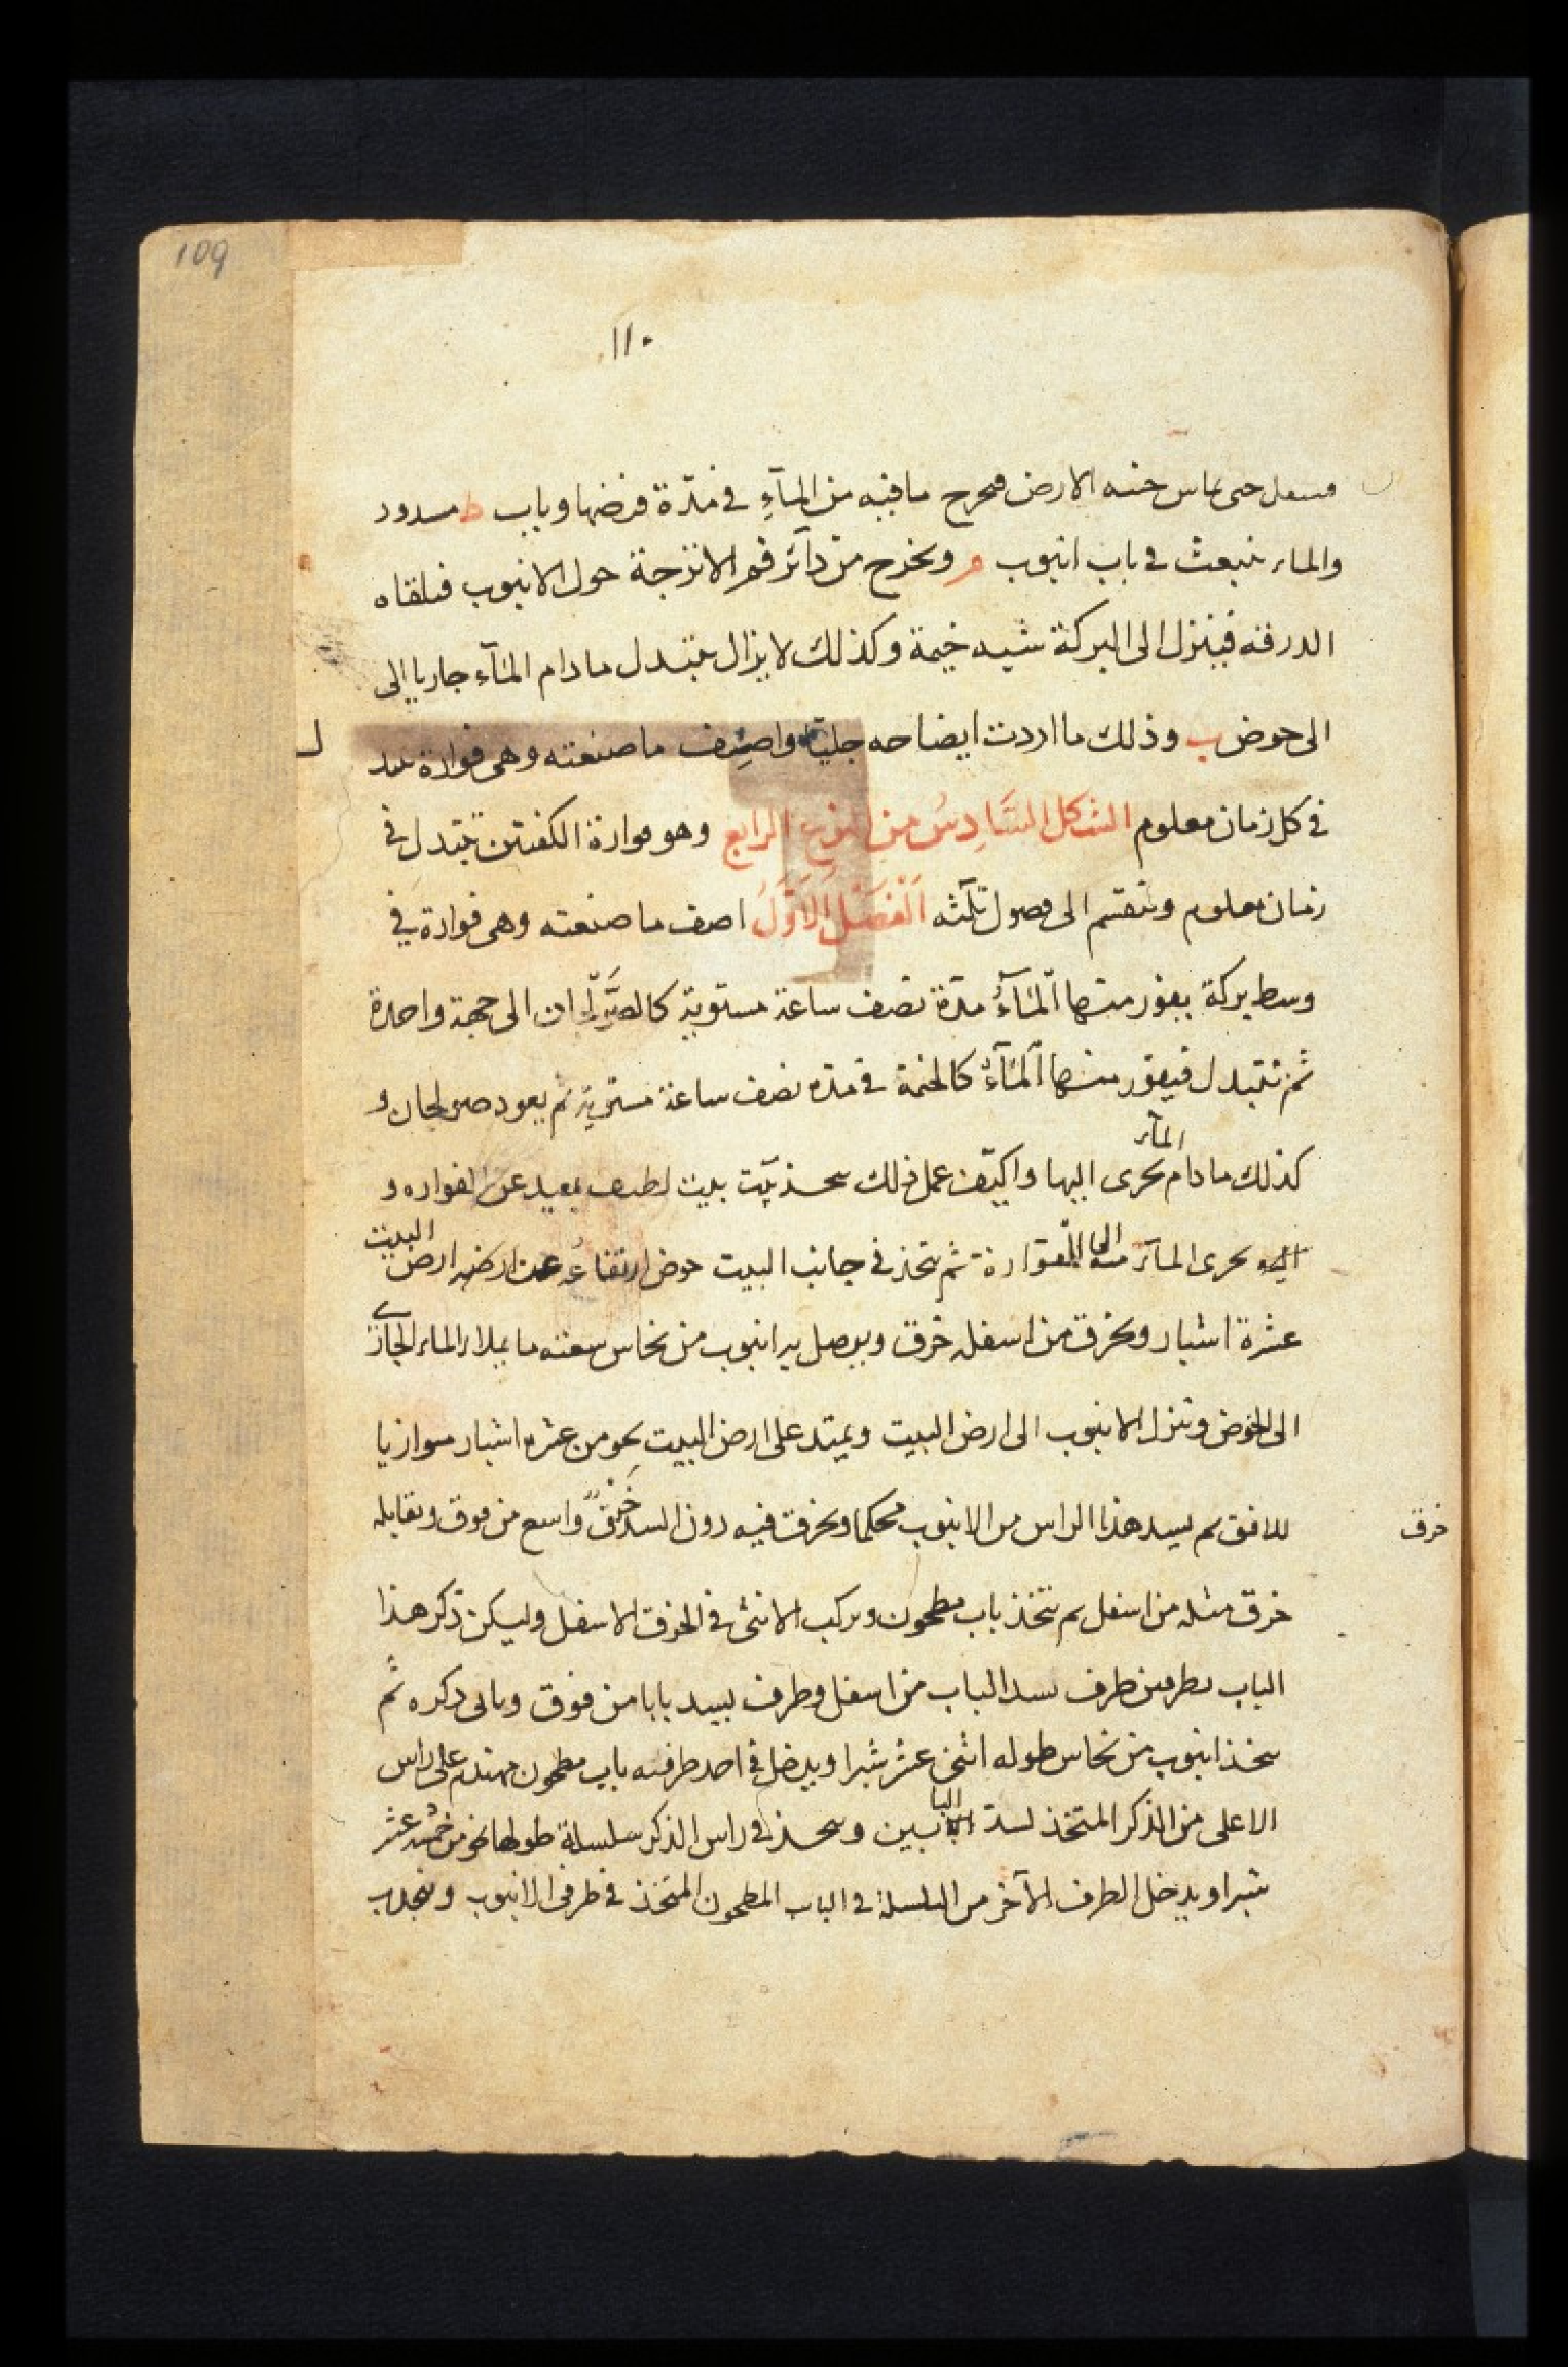 109
١١٠
حتى يماس جنبه الارض فيخرج ما فيه من المآءِ في مدّة فرضها وباب ط مسدود
والماء ينبعث في باب انبوب م ويخرج من دآئر فم الاترجة حول الانبوب فتلقاه
الدرقه فينزل الى البركة شبيه خيمة وكذلك لا يزال يتبدل ما دام المآء جاريا الى
الى حوض ب وذلك ما اردت ايضاحه جليّا واصِف ما صنعته وهى فوارة تتبدل
في كل زمان معلوم الشكل السَّادِسُ مِنَ النوعِ الرابع وهو فوارة الكفتين يتبدل في
زمان معلوم وينقسم الى فصول ثلثه اَلْفَصْلُ اَلاَوَّلُ اصف ما صنعته وهى فوارة في
وسط بركة يفور منها اَلمآءُ مدّة نصف ساعة مستوية كالصَّوْلجان الى جهة واحدة
ثم تتبدل فيفور منها اَلمآءُ كالخيمة في مده نصف ساعة مستوية ثم يعود صولجان و
كذلك ما دام المآء يجرى اليها واكيّف عمل ذلك يتخذ بيت لطيف بعيد عن الفواره و
يجرى المآء منه الى الفوّارة ثم يتخذ في جانب البيت حوض ارتفاعُه عن ارض البيت
عشرة اشبار ويخرق من اسفله خرق ويوصل به انبوب من نحاس سعته ما يملاء الماء الجارى
الى الحوض وينزل الانبوب الى ارض البيت ويمتد على ارض البيت نحو من عشره اشبار موازيا
للافق ثم يسد هذا الراس من الانبوب محكما ويخرق فيه دون السد خَرْقٌ واسع من فوق ويقابله
خرق
خرق مثله من اسفل ثم يتخذ باب مطحون ويركب الانثى في الخرق الاسفل وليكن ذكر هذا
الباب بطرفين طرف يسد الباب من اسفل وطرف يسد بابا من فوق وياتى ذكره ثم
يتخذ انبوب من نحاس طوله اثنى عشر شبرا ويدخل في احد طرفيه باب مطحون مهندم على راس
الاعلى من الذكر المتخذ لسد البابين ويتخذ في راس الذكر سلسلة طولها نحو من خمسة عشر
شبرا ويدخل الطرف الآخر من السلسلة في الباب المطحون المتخذ في طرف الانبوب ويجذب